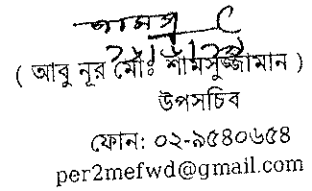 ( আবু নূর মোঃ শামসুজ্জামান )
উপসচিব
ফোন: ০২-৯৫৪০৬৫৪
per2mefwd@gmail.com